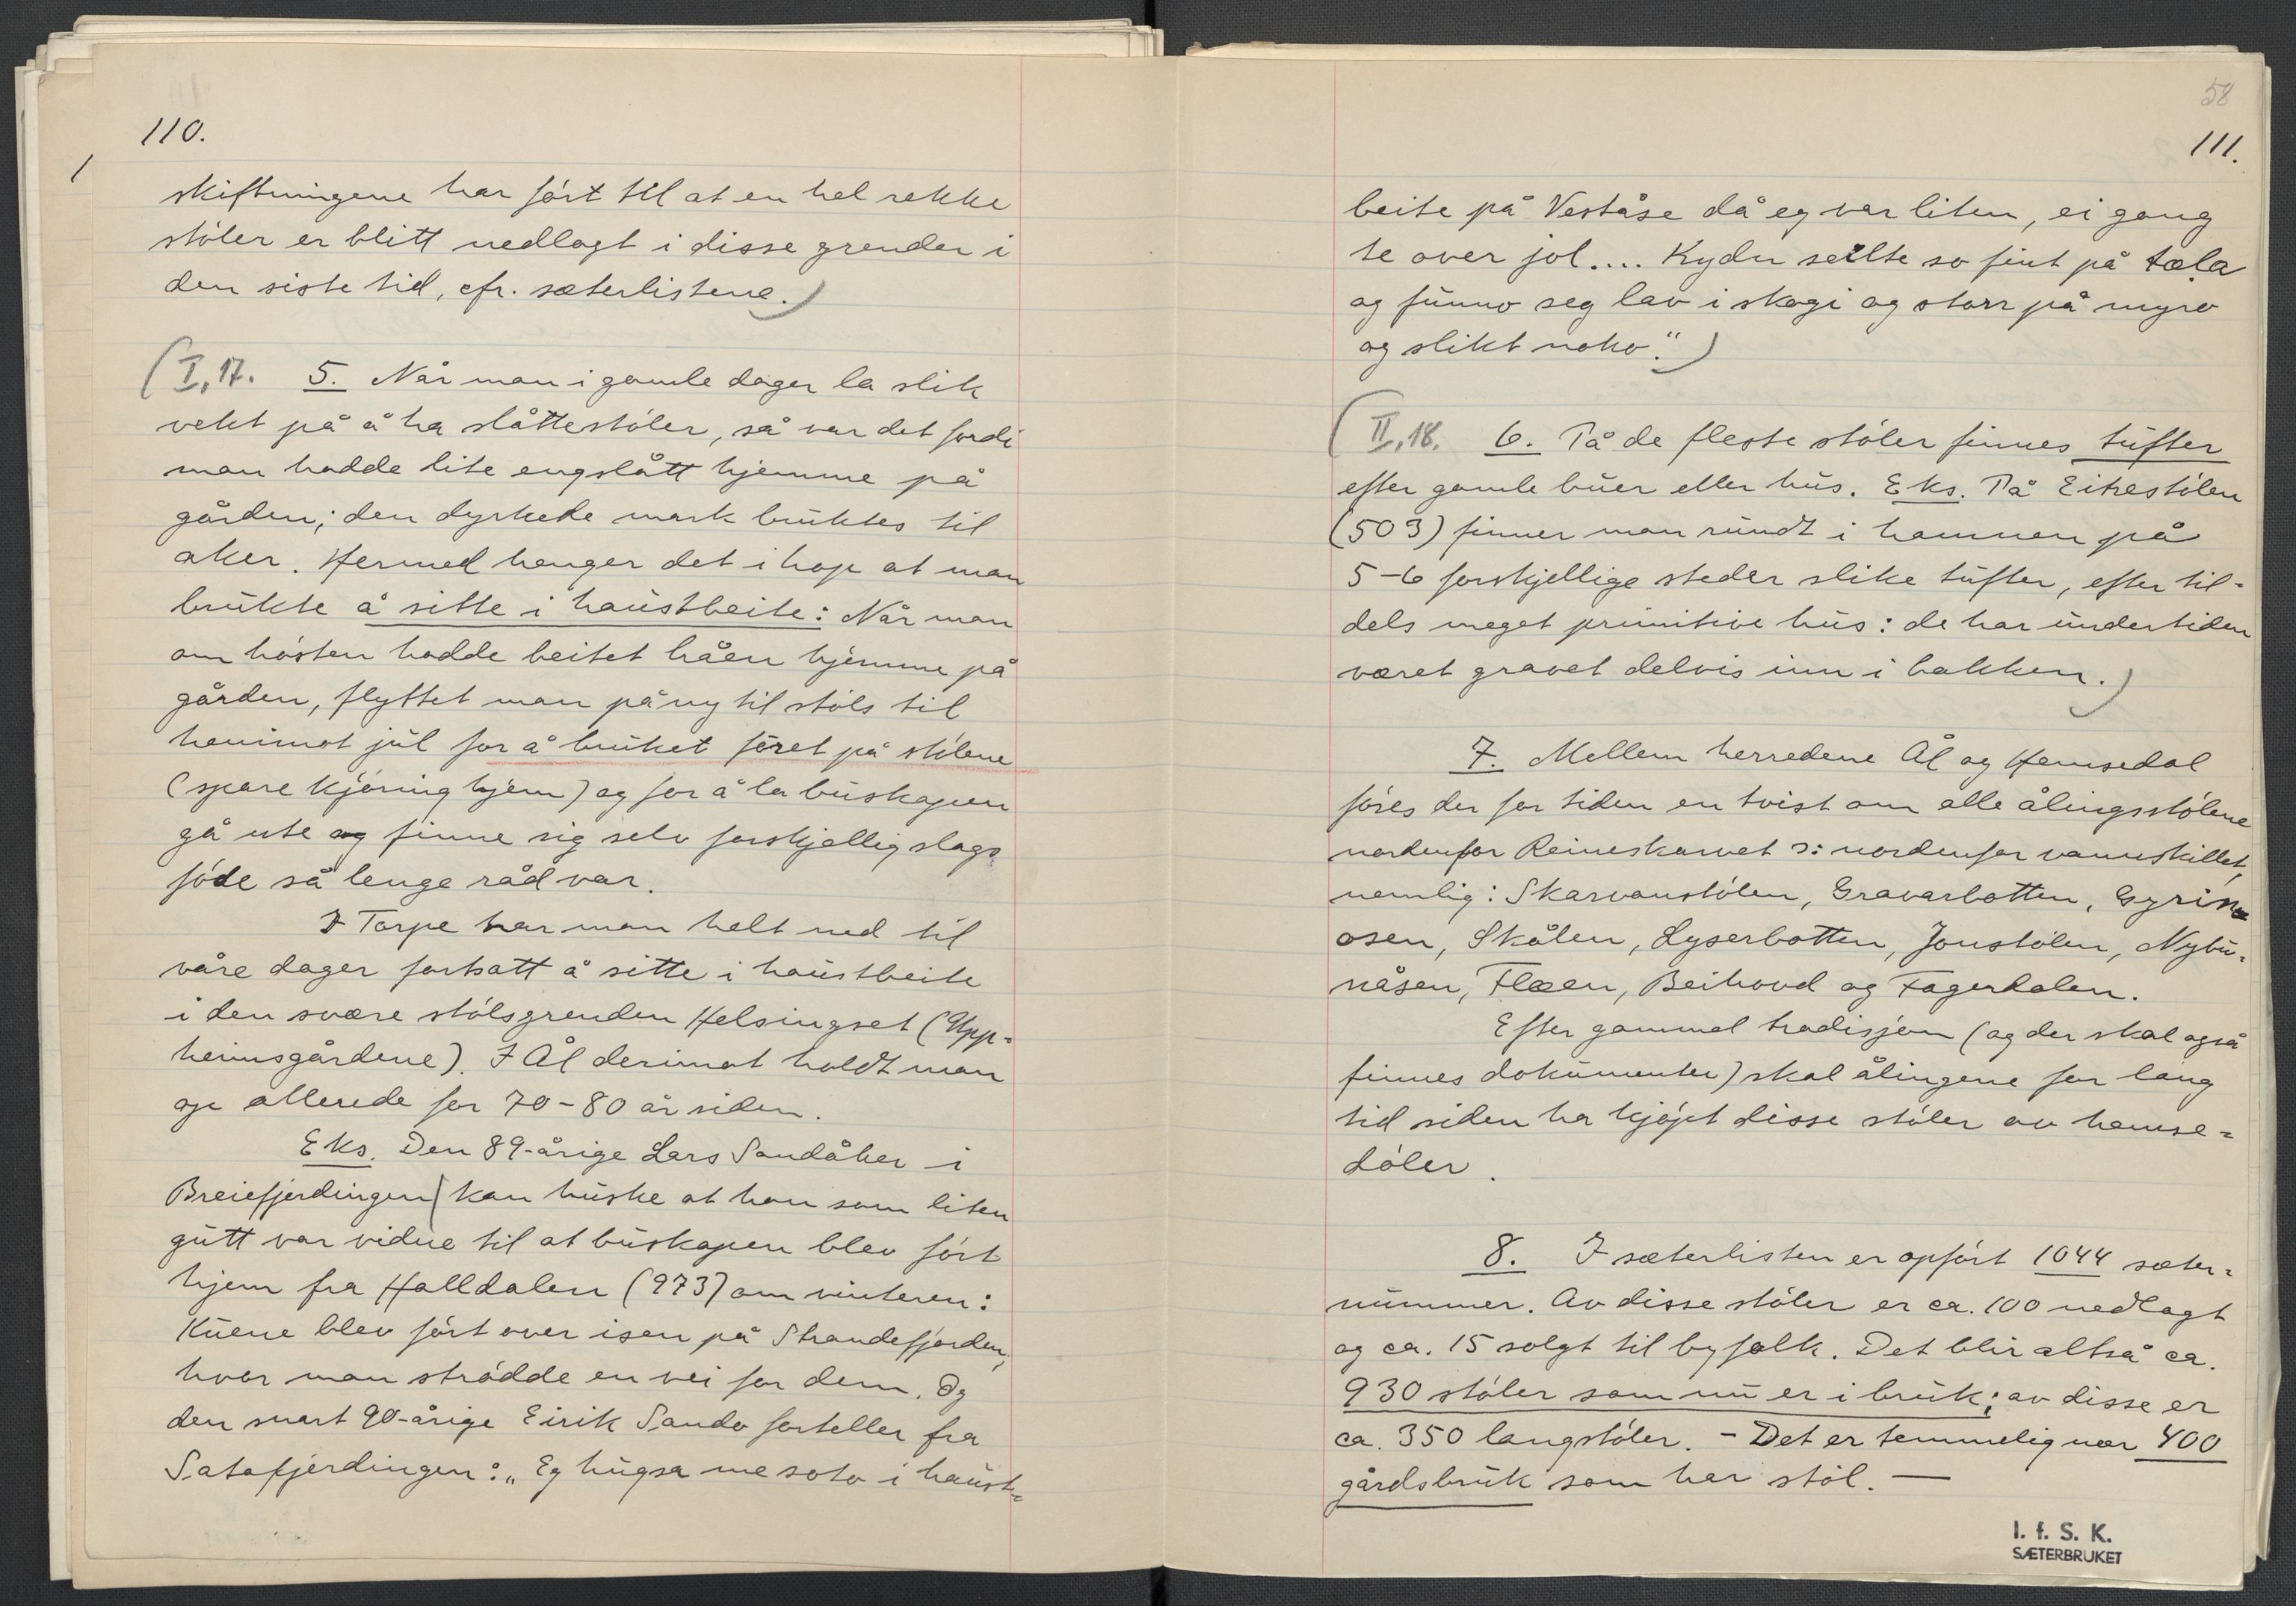 110.
skiftningene har ført til at en hel rekke
støler er blitt nedlagt i disse grender i
den siste tid, cfr. sæterlistene.)
(I,17. 5. Når man i gamle dager la slik
vekt på å ha slåttestøler, så var det fordi
man hadde lite engslått hjemme på
gården; den dyrkede mark bruktes til
aker. Hermed henger det i hop at man
brukte å sitte i haustbeite: Når man
om høsten hadde beitet håen hjemme på
gården, flyttet man på ny til støls til
henimot jul for å bruket fôret på stølene
(spare kjøring hjem) og for å la buskapen
gå ute og finne sig selv forskjellig slags
føde så lenge råd var.
I Torpe har man helt ned til
våre dager fortsatt å sitte i haustbeite
i den svære stølsgrenden Helsingset (Upp-
heimsgårdene). I Ål derimot holdt man
op allerede for 70-80 år siden.
Eks. Den 89-årige Lars Sandåker i
Breiefjerdingen kan huske at han som liten
gutt var vidne til at buskapen blev ført
hjem fra Halldalen (973) om vinteren:
Kuene blev ført over isen på Strandefjorden,
hvor man strødde en vei for dem. Og
den snart 90-årige Eirik Sando forteller fra
Satafjerdingen: „Eg hugsa me soto i haust-
58
111.
beite på Veståse då eg var liten, ei gong
te over jol.... Kydn seilte so fint på tæla
og funno seg lav i skogi og storr på myro
og slikt noko.")
(II,18. 6. På de fleste støler finnes tufter
efter gamle buer eller hus. Eks. På Eikrestølen
(503) finner man rundt i hamnen på
5-6 forskjellige steder slike tufter, efter til-
dels meget primitive hus: de har undertiden
været gravet delvis inn i bakken.)
7. Mellem herredene Ål og Hemsedal
føres der for tiden en tvist om alle ålingsstølene
nordenfor Reineskarvet ɔ: nordenfor vannskillet,
nemlig: Skarvanstølen, Gravarbotten, Gyrin-
osen, Skålen, Lyserbotten, Jonstølen, Nybu-
nåsen, Flæen, Beihovd og Fagerdalen.
Efter gammel tradisjon (og der skal også
finnes dokumenter) skal ålingene for lang
tid siden ha kjøpt disse støler av hemse-
døler.
8. I sæterlisten er opført 1044 sæter-
nummer. Av disse støler er ca. 100 nedlagt
og ca. 15 solgt til byfolk. Det blir altså ca.
930 støler som nu er i bruk; av disse er
ca. 350 langstøler. - Det er temmelig nær 400
gårdsbruk som har støl. —
I. f. S. K.
SÆTERBRUKET